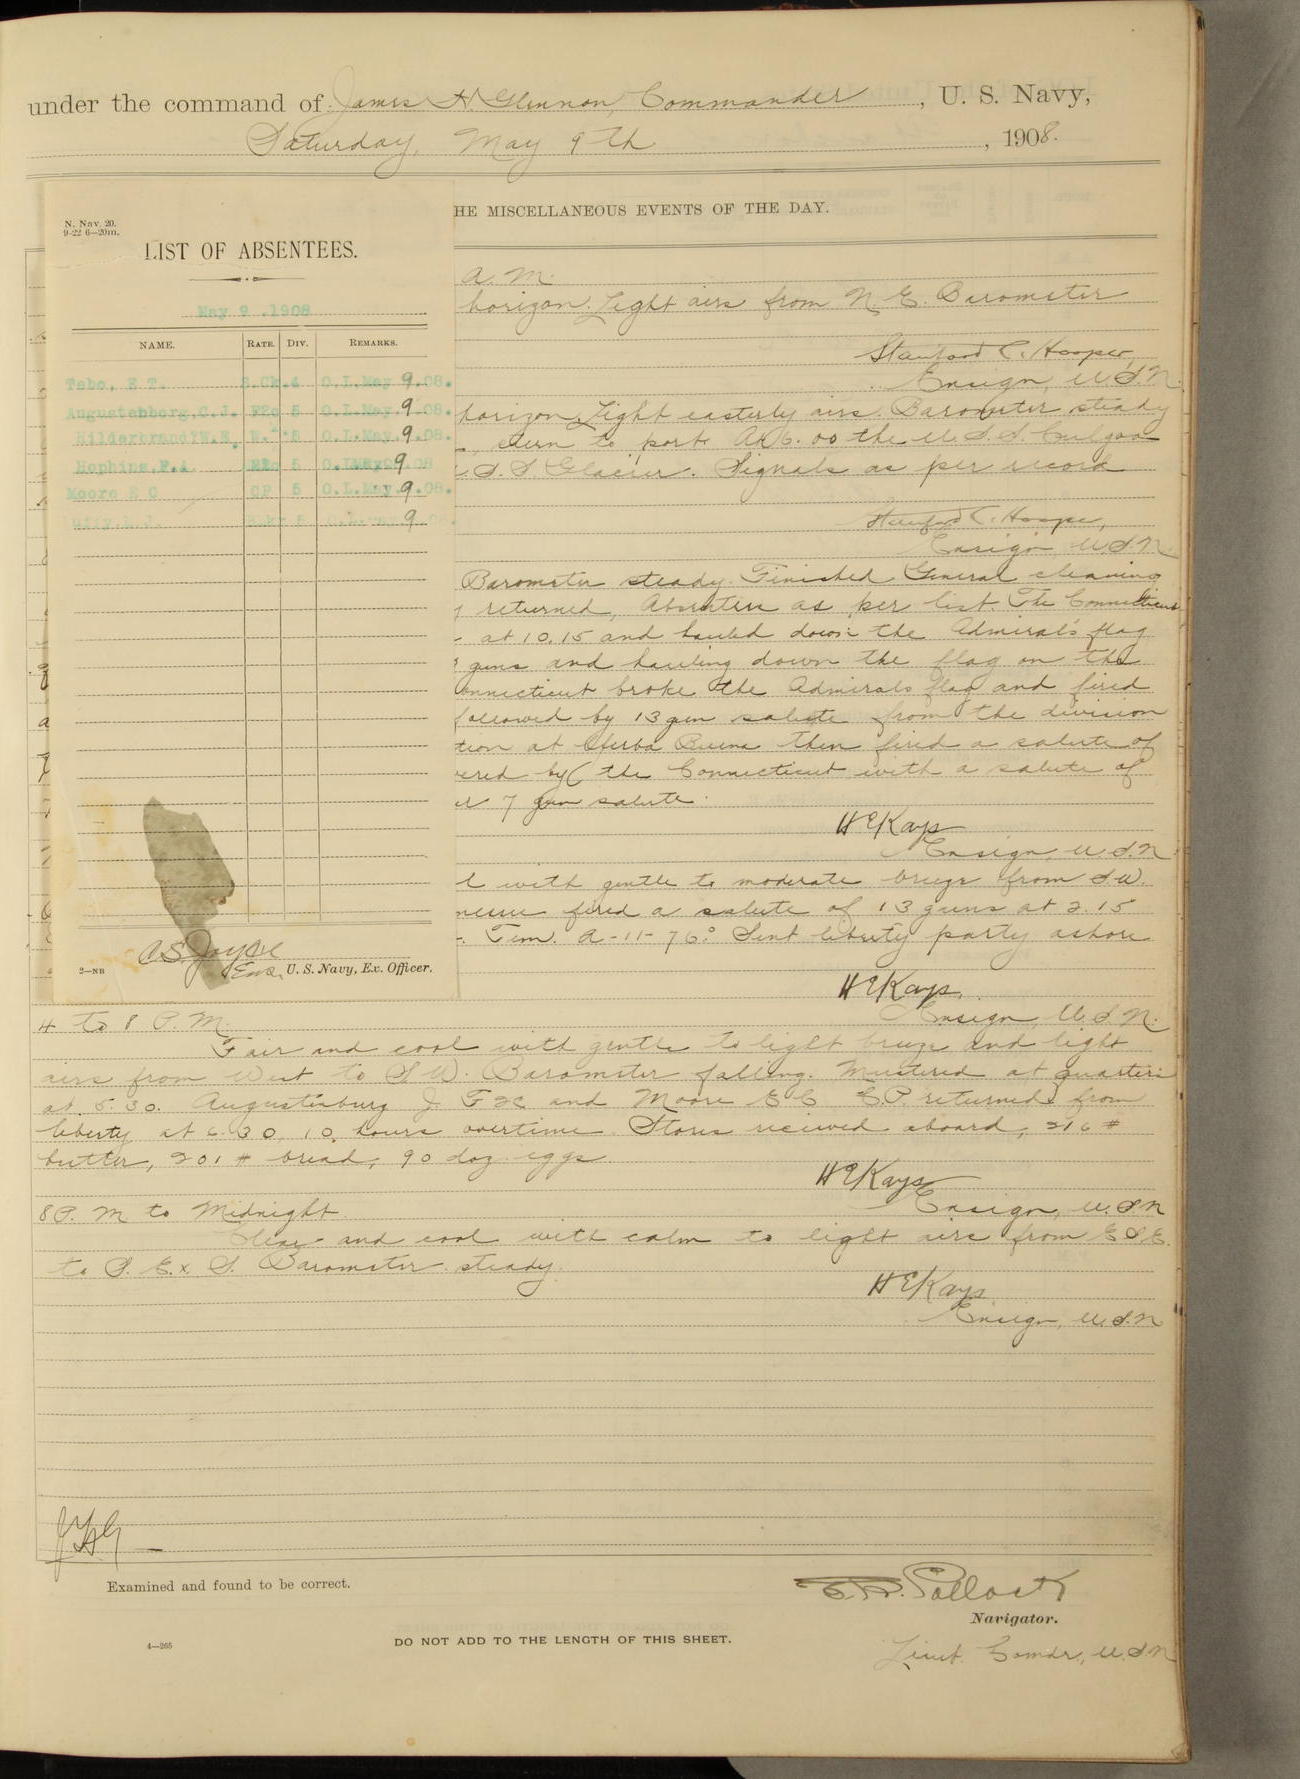 under the command of James H. Glennon, Commander, U. S. Navy,
Saturday, May 9th, 1908.
HE MISCELLANEOUS EVENTS OF THE DAY.
N. Nav. 20.
9-22 6—20m.
LIST OF ABSENTEES.
May 9 .1908
NAME. RATE. DIV. REMARKS.
Tebo, E T. S.Ck. 4 O.L.May 9.08.
Augustenborg,C.J. F2c 5 O.L.May.9.08.
Hilderbrand W.H. 5 O.L.May.9.08.
Hophins,F.A. 5 9 08
Moore E C CP 5 O.L.May.9.08.
5 9
A.S. Joyce
Ens. U. S. Navy, Ex. Officer.
2—NB
A. M.
horizon. Light airs from N. E. Barometer
Stanford C. Hooper,
Ensign, U.S.N.
horizon. Light easterly airs. Barometer steady
, stern to port. At 6.00 the U. S. S. Culgoa
S. S. Glacier. Signals as per record
Stanford C. Hooper,
Ensign, U.S.N.
Barometer steady. Finished General cleaning
returned, Absentees as per list. The Connecticut
at 10.15 and hauled down the Admiral's flag
guns and hauling down the flag on the
onnecticut broke the Admirals flag and fired
followed by 13 gun salute from the division
tion at Yerba Buena then fired a salute of
ered by the Connecticut with a salute of
7 gun salute.
H E Kays
Ensign, U.S.N
with gentle to moderate breeze from S.W.
nessee fired a salute of 13 guns at 2.15
Tem. A-11- 76° Sent liberty party ashore
H E Kays.
Ensign, U.S.N.
4 to 8 P. M.
Fair and cool with gentle to light breeze and light
airs from West to S.W. Barometer falling. Mustered at quarters
at 5.30. Augustenburg J. F2C and Moore E C C.P. returned from
liberty at 6.30, 10 hours overtime. Stores received aboard, 216 #
butter, 201 # bread, 90 doz eggs
H E Kays
Ensign, U.S.N
8 P. M to Midnight
Clear and cool with calm to light airs from E S E.
to S. E. x S. Barometer steady.
H E Kays
Ensign, U.S.N
JHG
Examined and found to be correct.
E. R. Pollock
Navigator.
4—265
DO NOT ADD TO THE LENGTH OF THIS SHEET.
Lieut. Comdr, U.S.N